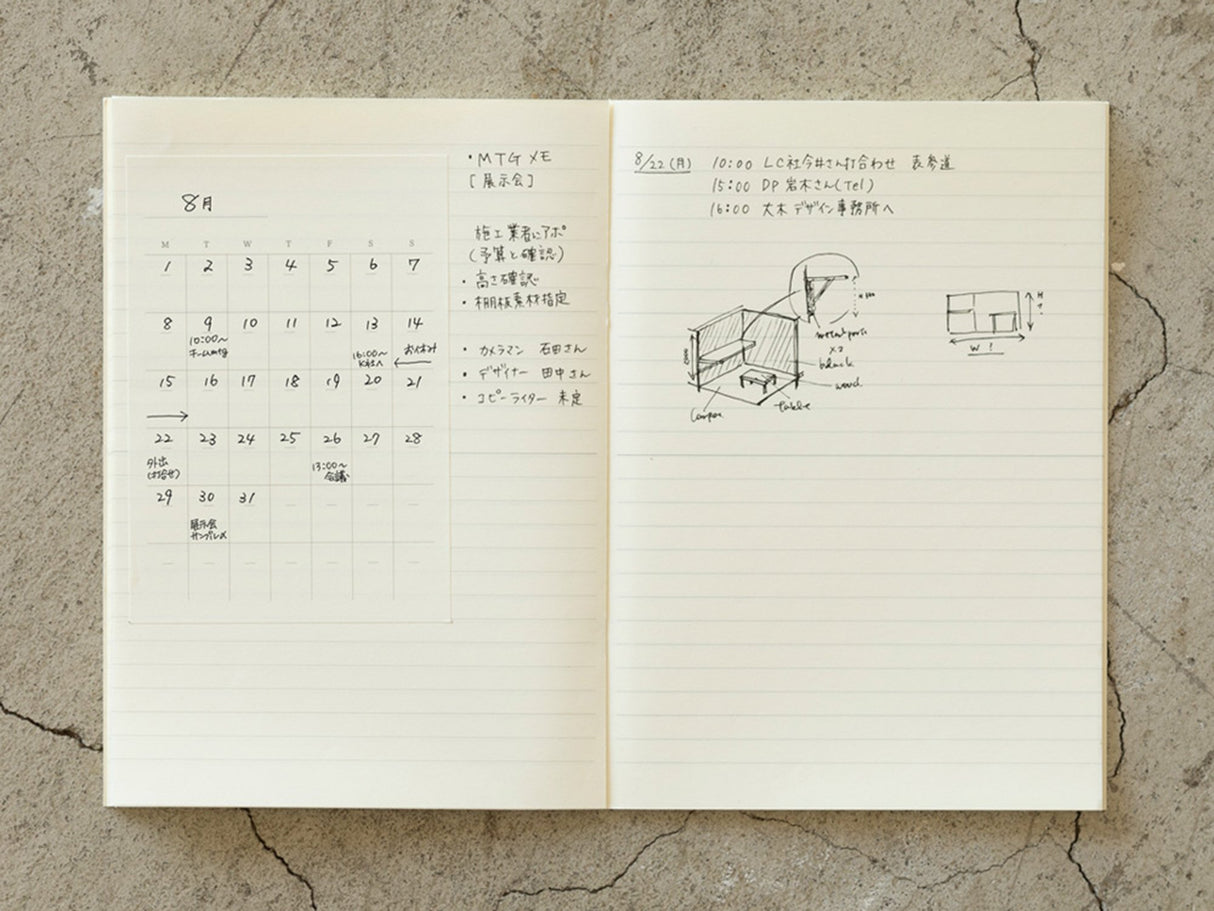 8月
M T W T F S S
1 2 3 4 5 6 7
8 9 10 11 12 13 14
10:00〜
チームmtg
16:00〜
K社へ
お休み
15 16 17 18 19 20 21
22 23 24 25 26 27 28
外出
(打合せ)
13:00〜
会議
29 30 31
展示会
サンプル〆
・MTG メモ
[展示会]
施工業者にアポ
(予算と確認)
・高さ確認
・棚板素材指定
・カメラマン 石田さん
・デザイナー 田中さん
・コピーライター 未定
8/22(月) 10:00 LC社今井さん打合わせ 表参道
15:00 DP 岩木さん(Tel)
16:00 大木デザイン事務所へ
metal parts
x2
black
wood
table
H
W !